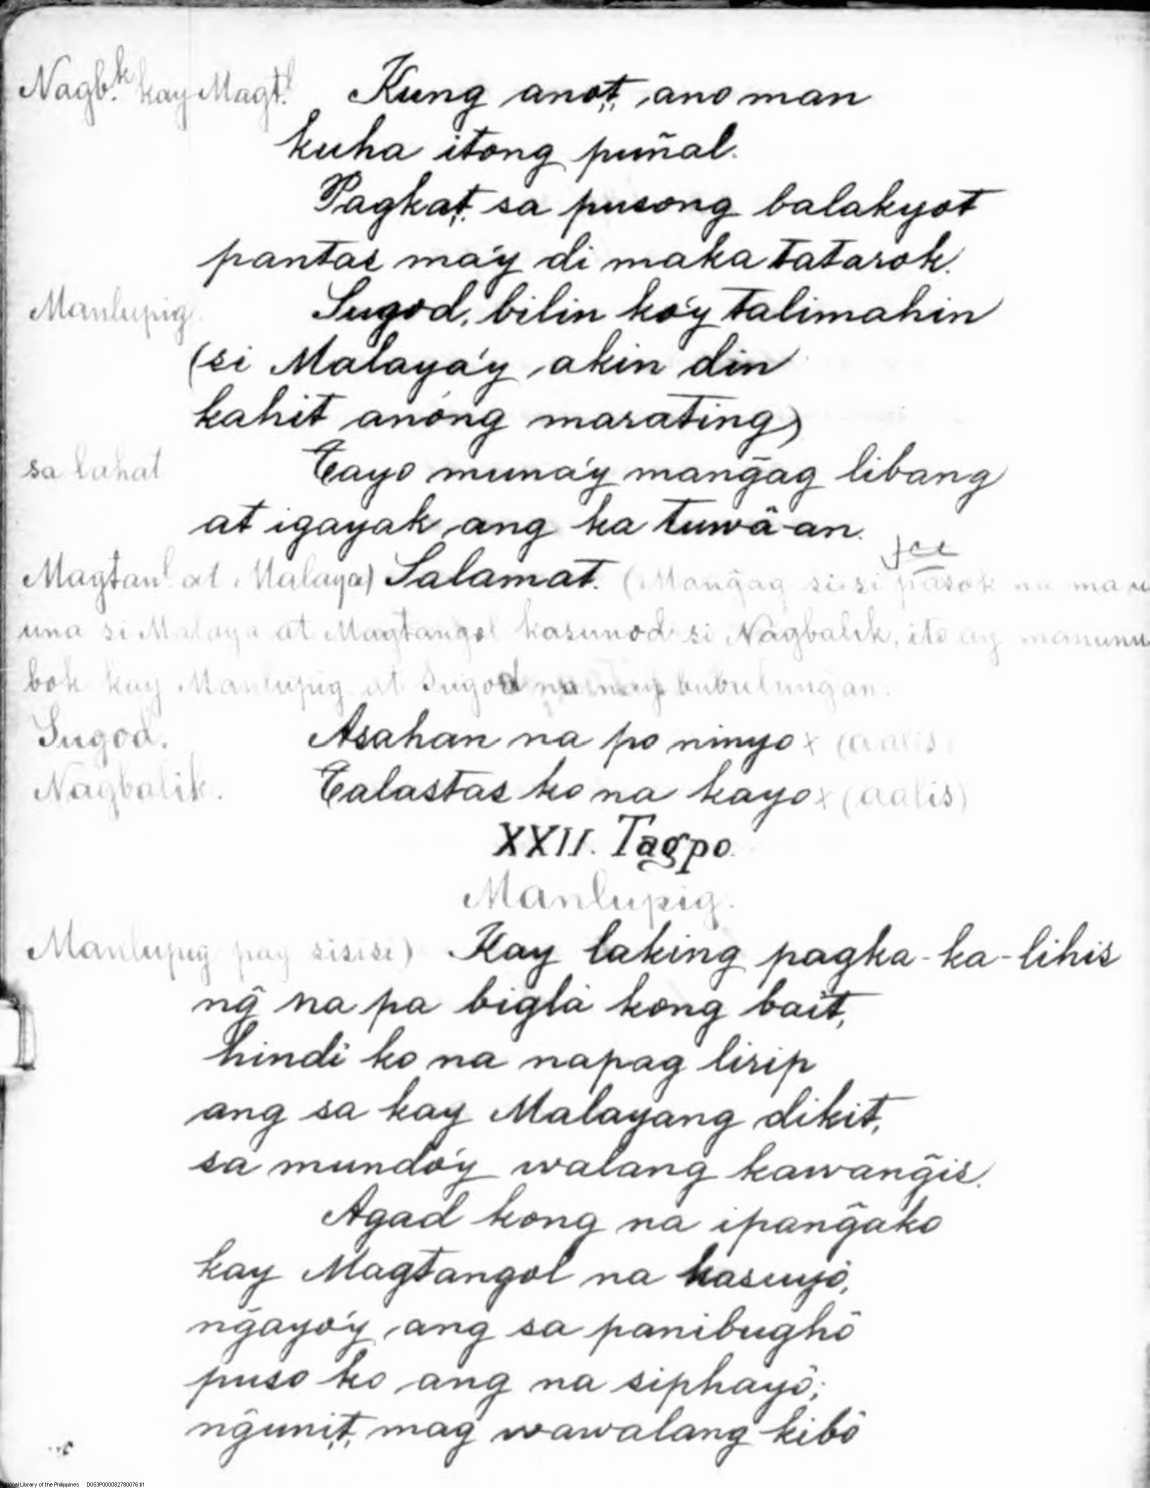 Nagb.k kay Magt.l Kung anot, ano man
kuha itong puñal.
Pagkat, sa pusong balakyot
pantas ma'y di maka tatarok.
Manlupig. Sugod, bilin ko'y talimahin
(si Malaya'y akin din
kahit anóng marating)
sa lahat Tayo muna'y mang̃ag libang
at igayak ang ka tuwâ-an.
Magtanl at Malaya) Salamat. (Mang̃ag sisi pasok na ma
una si Malaya at Magtangol kasunod si Nagbalik, ito ay manunu
bok kay Manlupig at Sugod na may bubulung̃an.
Sugod. Asahan na po ninyo x (aalis)
Nagbalik. Talastas ko na kayo x (aalis)
XXII. Tagpo.
Manlupig.
Manlupig pag sisisi) Kay laking pagka-ka-lihis
ng̃ na pa biglá kong bait,
hindî ko na napag lirip
ang sa kay Malayang dikit,
sa mundo'y walang kawang̃is.
Agad kong na ipang̃ako
kay Magtangol na kasuyò,
ng̃ayo'y ang sa panibughô
puso ko ang na siphayô;
ng̃unit, mag wawalang kibô
National Library of the Philippines D053P000082780076.tif